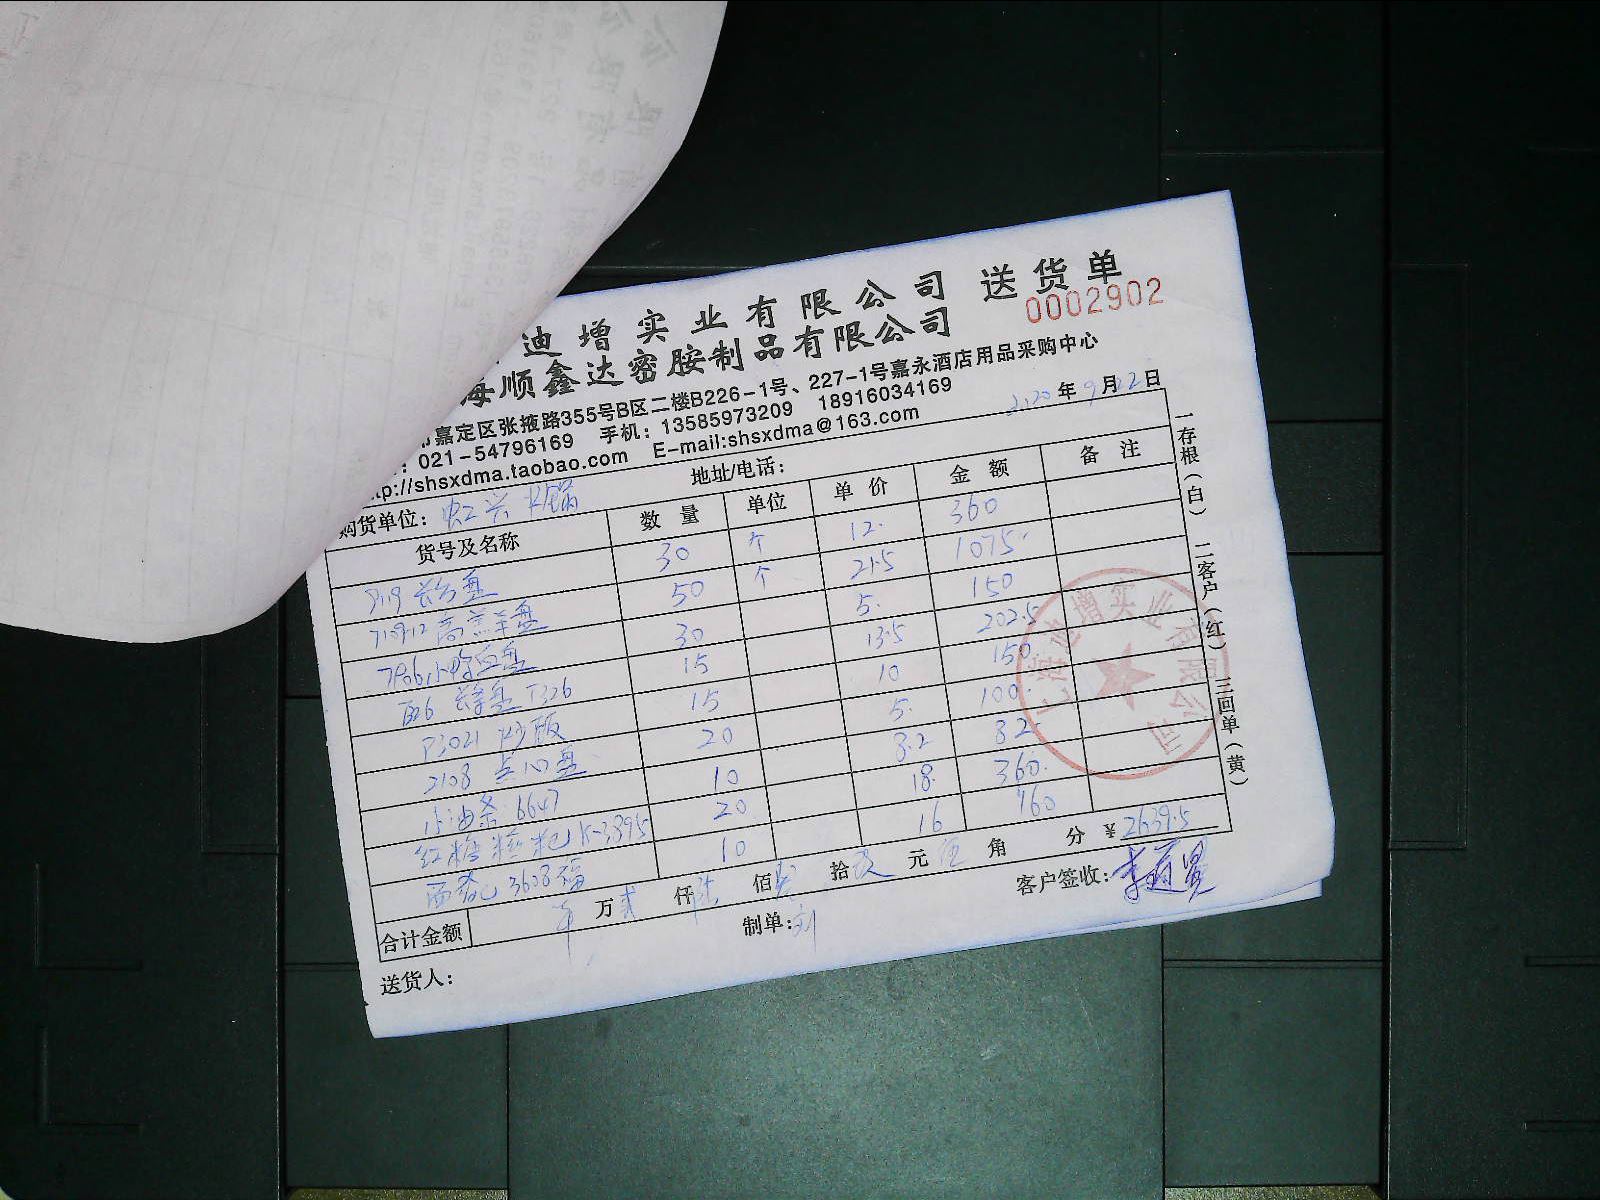 迪增实业有限公司 送货单
海顺鑫达密胺制品有限公司 0002902
嘉定区张掖路355号B区二楼B226-1号、227-1号嘉永酒店用品采购中心
: 021-54796169 手机: 13585973209 18916034169
tp://shsxdma.taobao.com E-mail:shsxdma@163.com 2020年9月22日
购货单位: 虹兴火锅 地址/电话:
货号及名称 数量 单位 单价 金额 备注
长方盘 30 个 12. 360
盘 50 个 21.5 1075.
7906 小 盘 30 5. 150
盘 T326 15 13.5 202.5
P3021 15 10 150.
2108 点心盘 20 5. 100.
油条 6647 10 8.2 82.
红糖糍粑 K-3895 20 18. 360.
3608 10 16 160
合计金额 万贰仟陆佰 拾玖元伍角 分 ¥2639.5
送货人: 制单:刘 客户签收:
一存根(白) 二客户(红) 三回单(黄)
上海迪增实业有限公司